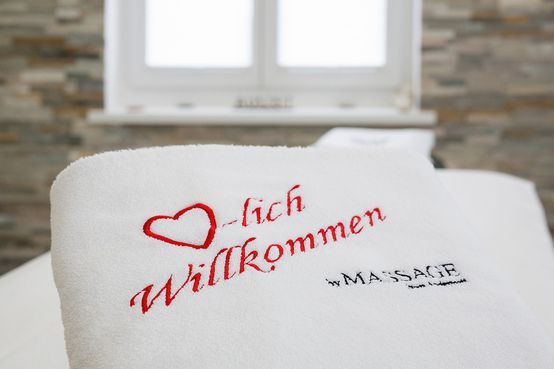 ♡-lich
Willkommen
wMASSAGE